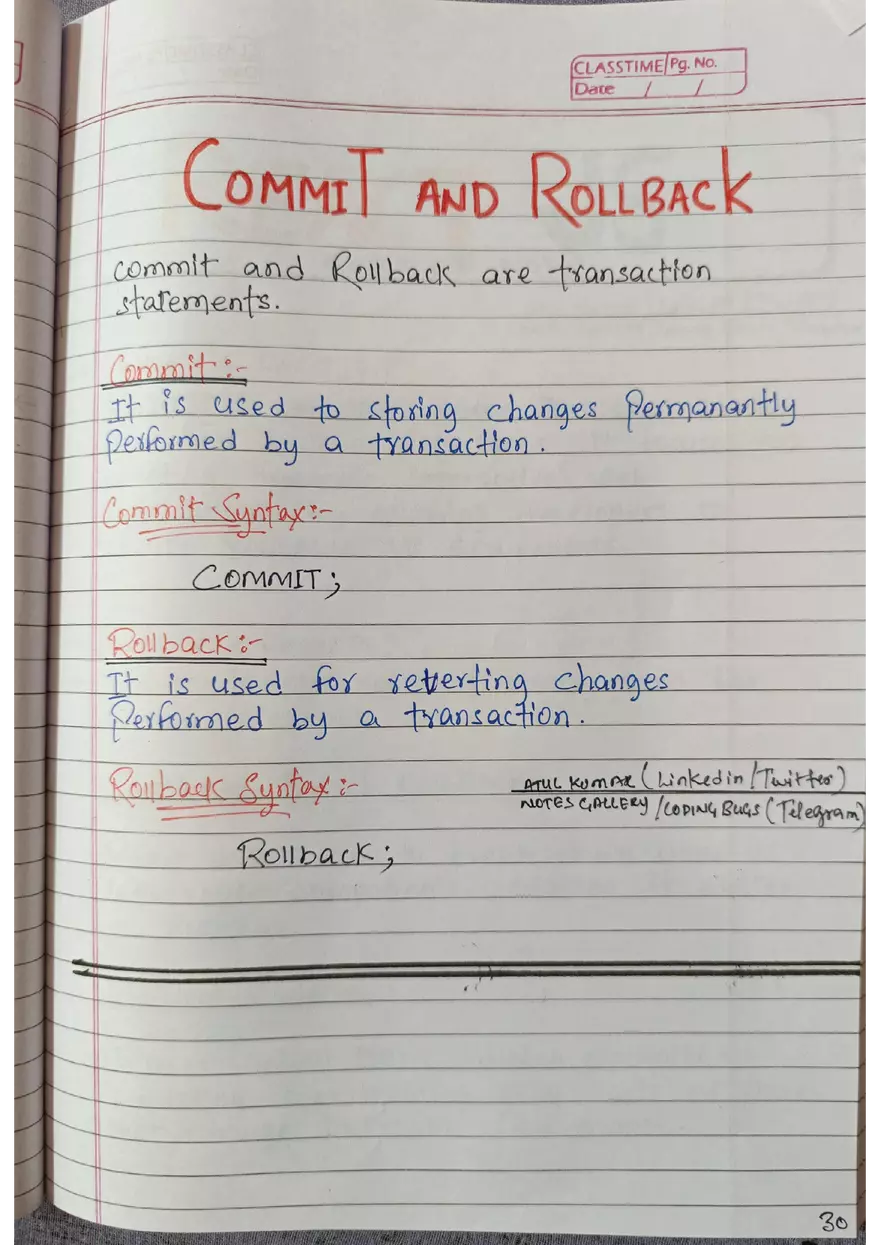 CLASSTIME Pg. No.
Date / /
COMMIT AND ROLLBACK
Commit and Rollback are transaction
statements.
Commit :-
It is used to storing changes Permanantly
Performed by a transaction.
Commit Syntax:-
COMMIT;
Rollback :-
It is used for reverting changes
Performed by a transaction.
Rollback Syntax :-
ATUL KUMAR (Linkedin/Twitter)
NOTES GALLERY /CODING BUGS (Telegram)
Rollback;
30